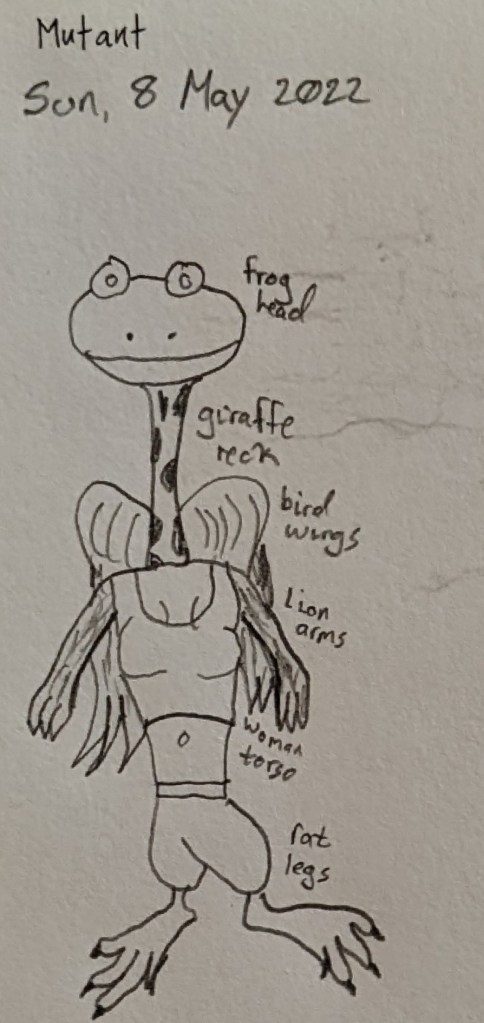 Mutant
Sun, 8 May 2022
frog
head
giraffe
neck
bird
wings
Lion
arms
woman
torso
rat
legs